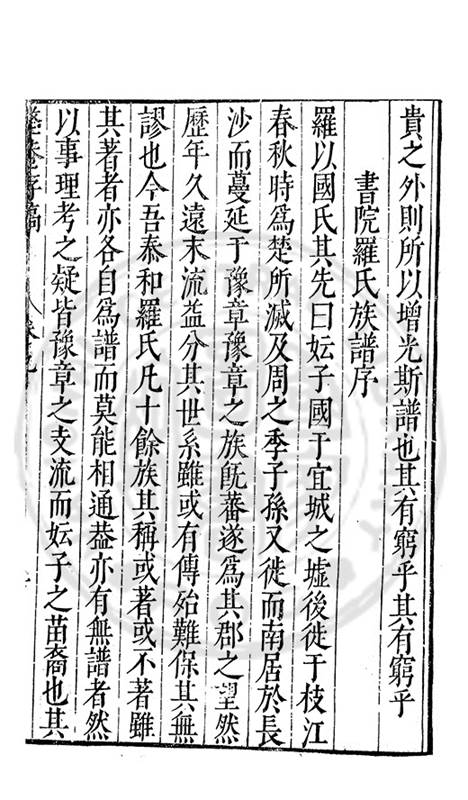 貴之外則所以增光斯譜也其有窮乎其有窮乎
書院羅氏族譜序
羅以國氏其先曰妘子國于宜城之墟後徙于枝江
春秋時爲楚所滅及周之季子孫又徙而南居於長
沙而蔓延于豫章豫章之族旣蕃遂爲其郡之望然
歷年久遠末流益分其世系雖或有傳殆難保其無
謬也今吾泰和羅氏凡十餘族其稱或著或不著雖
其著者亦各自爲譜而莫能相通葢亦有無譜者然
以事理考之疑皆豫章之支流而妘子之苗裔也其
整菴存稿